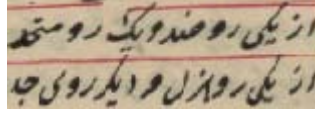 از یکی رو صد و یک رو متحد
از یکی رو هزل و دیگر روی جد